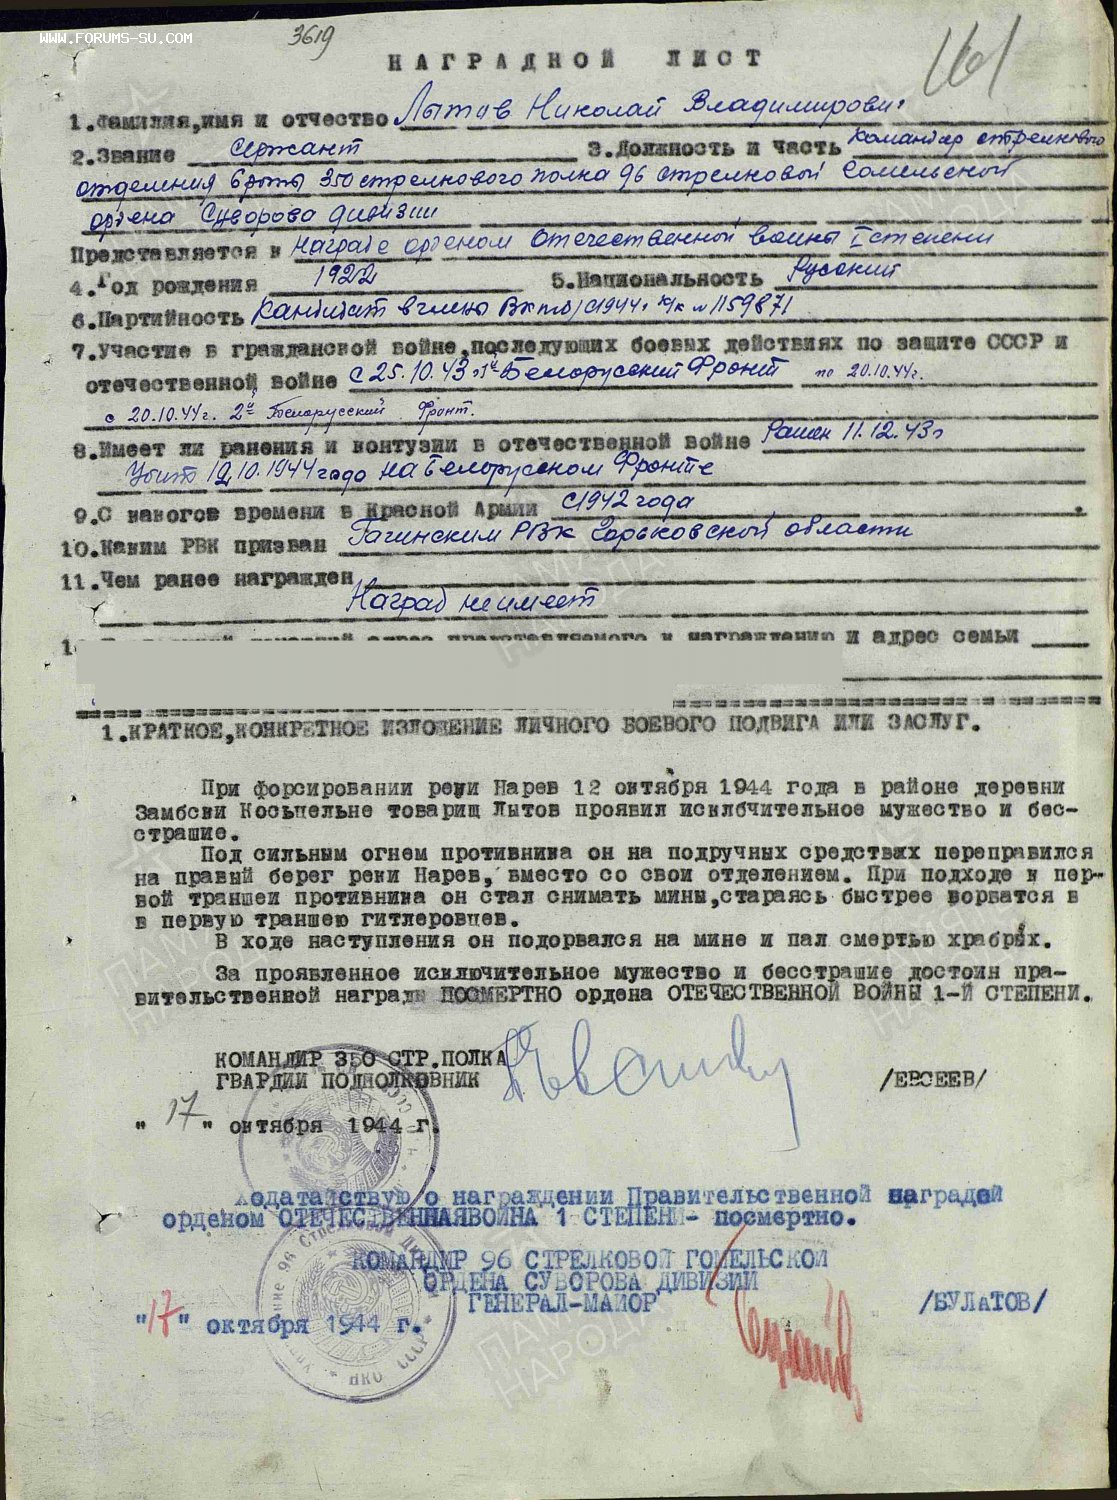 WWW.FORUMS-SU.COM
3619
161
НАГРАДНОЙ ЛИСТ
1.Фамилия,имя и отчество Лытов Николай Владимирович
2.Звание Сержант 3.Должность и часть Командир стрелкового
отделения 6 роты 350 стрелкового полка 96 стрелковой Гомельской
ордена Суворова дивизии
Представляется к награде орденом Отечественной войны I степени
4.Год рождения 1922 5.Национальность Русский
6.Партийность Кандидат в члены ВКП(б) с 1944г к/к № 1159871
7.Участие в гражданской войне,последующих боевых действиях по защите СССР и
отечественной войне с 25.10.43г 1й Белорусский Фронт по 20.10.44г.
с 20.10.44г. 2й Белорусский Фронт.
8.Имеет ли ранения и контузии в отечественной войне Ранен 11.12.43г
Убит 12.10.1944 года на Белорусском Фронте
9.С какогов времени в Красной Армии с 1942 года
10.Каким РВК призван Гагинским РВК Горьковской области
11.Чем ранее награжден
Наград не имеет
1 адрес представляемого к награждению и адрес семьи
1.КРАТКОЕ,КОНКРЕТНОЕ ИЗЛОЖЕНИЕ ЛИЧНОГО БОЕВОГО ПОДВИГА ИЛИ ЗАСЛУГ.
При форсировании реки Нарев 12 октября 1944 года в районе деревни
Замбски Косьцельне товарищ Лытов проявил исключительное мужество и бес-
страшие.
Под сильным огнем противника он на подручных средствах переправился
на правый берег реки Нарев, вместо со свои отделением. При подходе к пер-
вой траншеи противника он стал снимать мины,стараясь быстрее ворватся в
в первую траншею гитлеровцев.
В ходе наступления он подорвался на мине и пал смертью храбрых.
За проявленное исключительное мужество и бесстрашие достоин пра-
вительственной награды ПОСМЕРТНО ордена ОТЕЧЕСТВЕННОЙ ВОЙНЫ 1-Й СТЕПЕНИ.
КОМАНДИР 350 СТР.ПОЛКА
ГВАРДИИ ПОДПОЛКОВНИК /ЕВСЕЕВ/
"17" октября 1944 г.
Ходатайствую о награждении Правительственной наградой
орденом ОТЕЧЕСТВЕННАЯВОЙНА 1 СТЕПЕНИ- посмертно.
КОМАНДИР 96 СТРЕЛКОВОЙ ГОМЕЛЬСКОЙ
ОРДЕНА СУВОРОВА ДИВИЗИИ
ГЕНЕРАЛ-МАИОР /БУЛАТОВ/
"17" октября 1944 г.